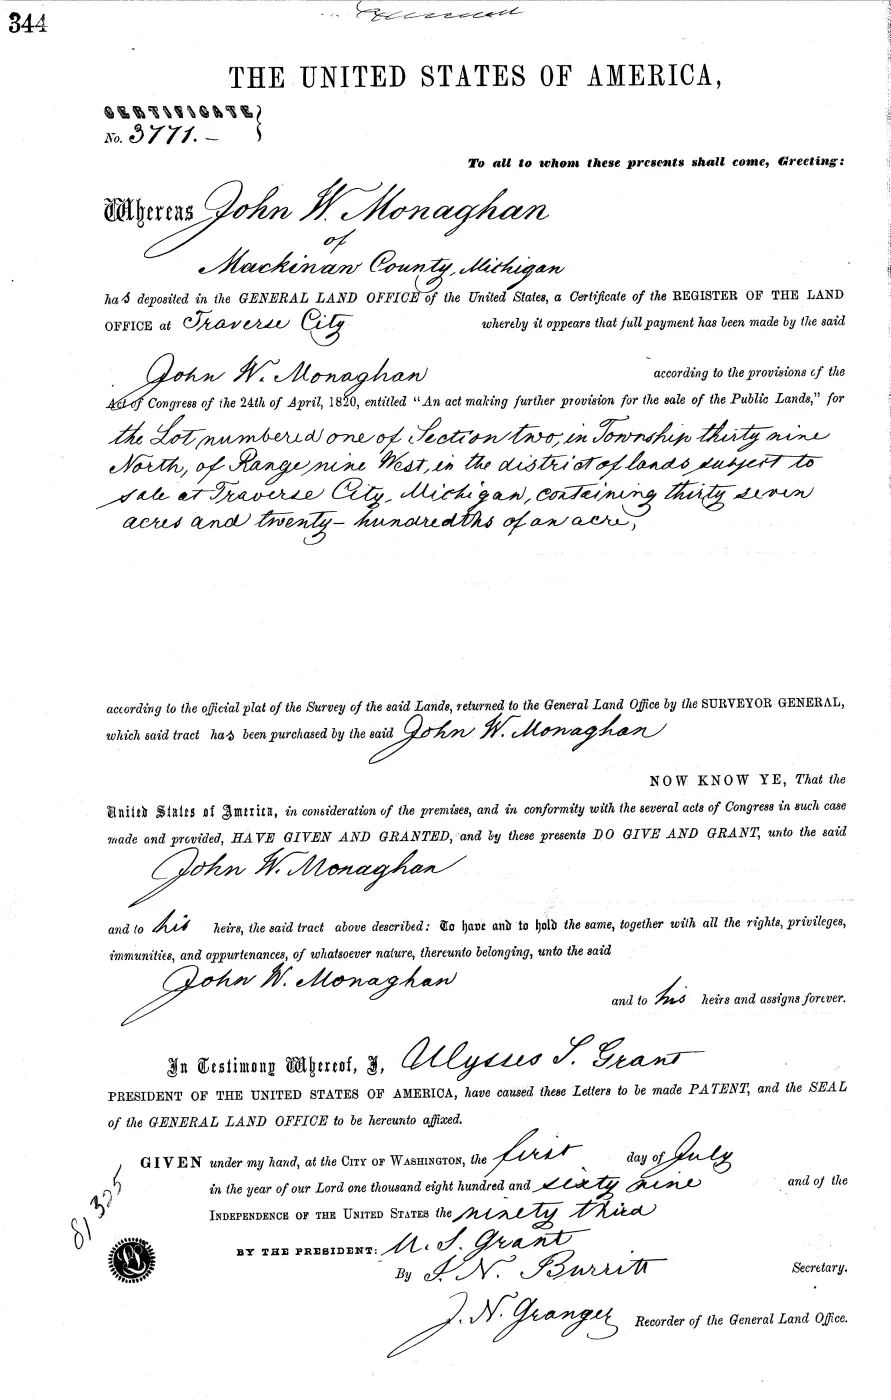 344
THE UNITED STATES OF AMERICA,
CERTIFICATE
No. 3771.—
To all to whom these presents shall come, Greeting:
Whereas John W. Monaghan
of
Mackinaw County, Michigan
has deposited in the GENERAL LAND OFFICE of the United States, a Certificate of the REGISTER OF THE LAND
OFFICE at Traverse City whereby it appears that full payment has been made by the said
John W. Monaghan according to the provisions of the
Act of Congress of the 24th of April, 1820, entitled "An act making further provision for the sale of the Public Lands," for
the Lot numbered one of Section two, in Township thirty nine
North, of Range nine West, in the district of lands subject to
sale at Traverse City, Michigan, containing thirty seven
acres and twenty- hundredths of an acre,
according to the official plat of the Survey of the said Lands, returned to the General Land Office by the SURVEYOR GENERAL,
which said tract has been purchased by the said John W. Monaghan
NOW KNOW YE, That the
United States of America, in consideration of the premises, and in conformity with the several acts of Congress in such case
made and provided, HAVE GIVEN AND GRANTED, and by these presents DO GIVE AND GRANT, unto the said
John W. Monaghan
and to his heirs, the said tract above described: To have and to hold the same, together with all the rights, privileges,
immunities, and appurtenances, of whatsoever nature, thereunto belonging, unto the said
John W. Monaghan
and to his heirs and assigns forever.
In Testimony Whereof, I, Ulysses S. Grant
PRESIDENT OF THE UNITED STATES OF AMERICA, have caused these Letters to be made PATENT, and the SEAL
of the GENERAL LAND OFFICE to be hereunto affixed.
GIVEN under my hand, at the CITY OF WASHINGTON, the first day of July
in the year of our Lord one thousand eight hundred and sixty nine and of the
INDEPENDENCE OF THE UNITED STATES the ninety third
BY THE PRESIDENT: U. S. Grant
By I. N. Burritt Secretary.
J. N. Granger Recorder of the General Land Office.
81325
LS